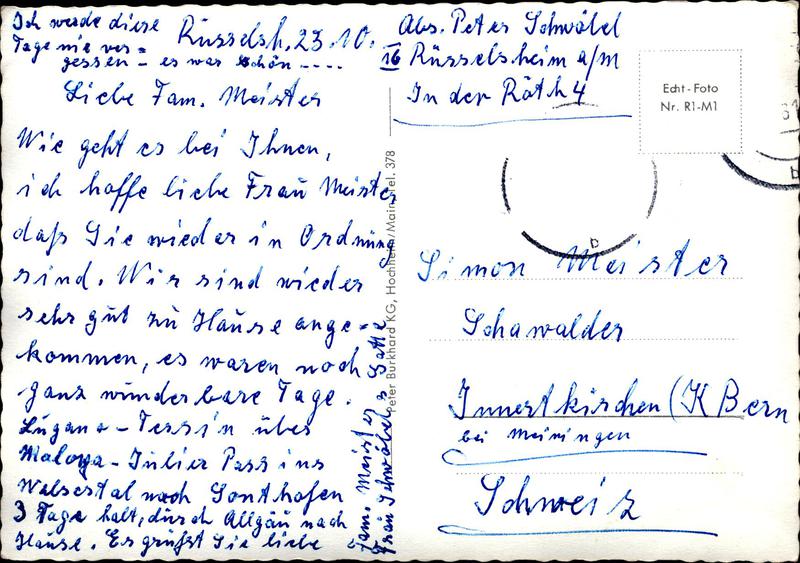 Ich werde diese
Tage nie ver=
gessen - es war schön ----
Rüsselsh. 23.10.
Liebe Fam. Meister
Wie geht es bei Ihnen,
ich hoffe liebe Frau Meister
daß Sie wieder in Ordnung
sind. Wir sind wieder
sehr gut zu Hause ange=
kommen, es waren noch
ganz wunderbare Tage.
Lugano - Tessin über
Maloya - Julier Pass ins
Walsertal nach Sonthofen
3 Tage halt, durch Allgäu nach
Hause. Es grüßt Sie liebe
Fam. Meister
Frau Schwöbel & Gatte
Peter Burkhard KG, Hochheim/Main, Tel. 378
Abs. Peter Schwöbel
16 Rüsselsheim a/m
In der Röth 4
Echt-Foto
Nr. R1-M1
b
b
Simon Meister
Schawalder
Innertkirchen (K Bern
bei Meiningen
Schweiz